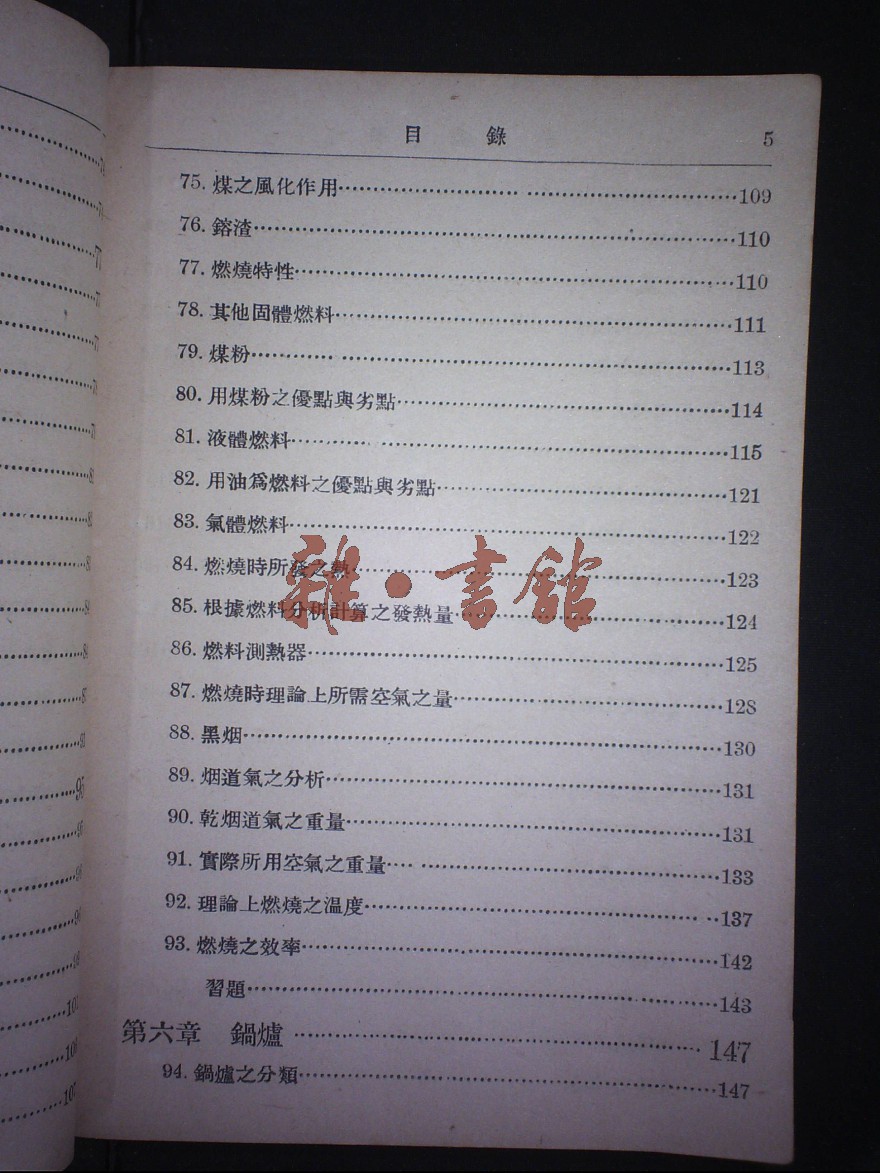 目 錄 5
75. 煤之風化作用 109
76. 鎔渣 110
77. 燃燒特性 110
78. 其他固體燃料 111
79. 煤粉 113
80. 用煤粉之優點與劣點 114
81. 液體燃料 115
82. 用油爲燃料之優點與劣點 121
83. 氣體燃料 122
84. 燃燒時所發之熱 123
85. 根據燃料分析計算之發熱量 124
86. 燃料測熱器 125
87. 燃燒時理論上所需空氣之量 128
88. 黑烟 130
89. 烟道氣之分析 131
90. 乾烟道氣之重量 131
91. 實際所用空氣之重量 133
92. 理論上燃燒之溫度 137
93. 燃燒之效率 142
習題 143
第六章 鍋爐 147
94. 鍋爐之分類 147
雜·書館